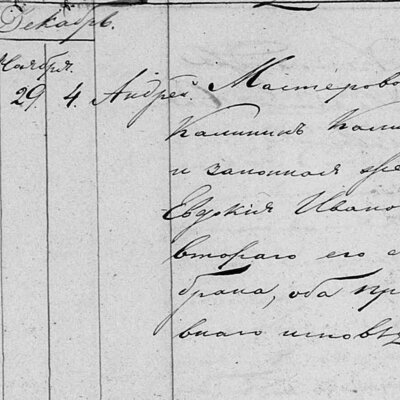 Декабрь.
Ноября.
29 4. Андрей. Мастерово
Калининъ Кали
и законная же
Евдокія Ивано
втораго его
брака, оба пр
внаго исповѣд